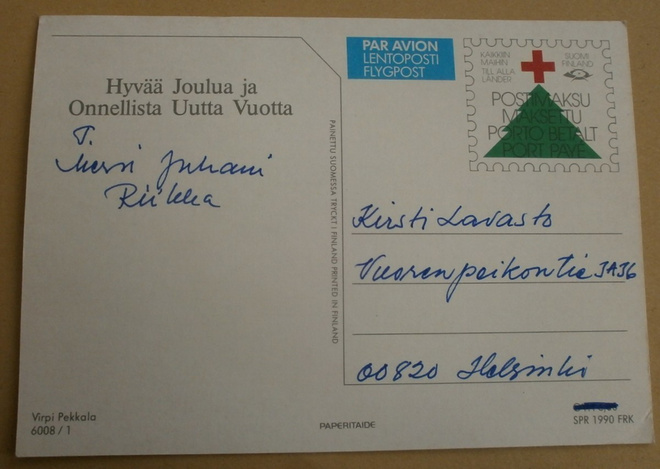 Hyvää Joulua ja
Onnellista Uutta Vuotta
T.
Mervi Juhani
Riikka
Virpi Pekkala
6008 / 1
PAINETTU SUOMESSA TRYCKT I FINLAND PRINTED IN FINLAND
PAPERITAIDE
PAR AVION
LENTOPOSTI
FLYGPOST
KAIKKIIN
MAIHIN
TILL ALLA
LÄNDER
SUOMI
FINLAND
POSTIMAKSU
MAKSETTU
PORTO BETALT
PORT PAYÉ
Kirsti Lavasto
Vuorenpeikontie 3A36
00820 Helsinki
SPR 1990 FRK